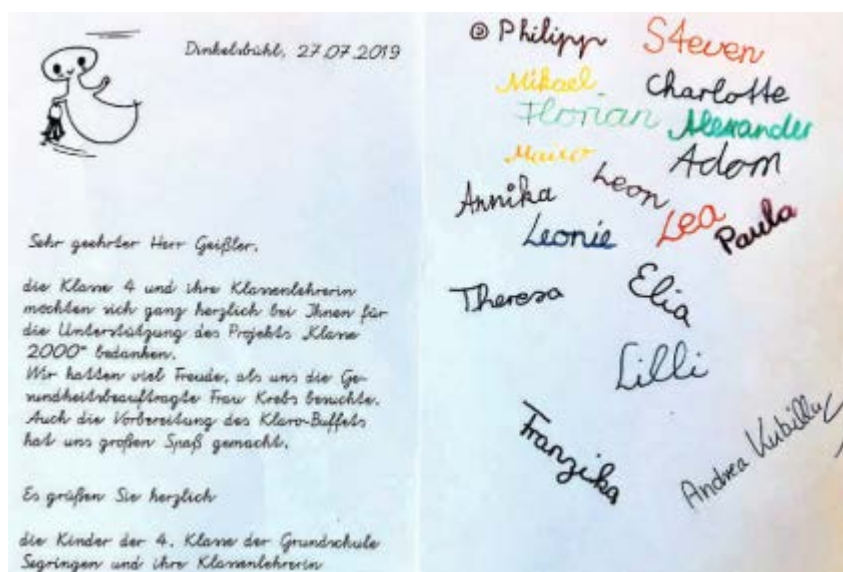 Dinkelsbühl, 27.07.2019
Sehr geehrter Herr Geißler,
die Klasse 4 und ihre Klassenlehrerin
möchten sich ganz herzlich bei Ihnen für
die Unterstützung des Projekts „Klasse
2000“ bedanken.
Wir hatten viel Freude, als uns die Ge-
sundheitsbeauftragte Frau Krebs besuchte.
Auch die Vorbereitung des Klaro-Buffets
hat uns großen Spaß gemacht.
Es grüßen Sie herzlich
die Kinder der 4. Klasse der Grundschule
Segringen und ihre Klassenlehrerin
Philipp S4even
Mikael Charlotte
Florian Alexander
Adam
Annika Leon
Leonie Lea Paula
Theresa Elia
Lilli
Franzika
Andrea